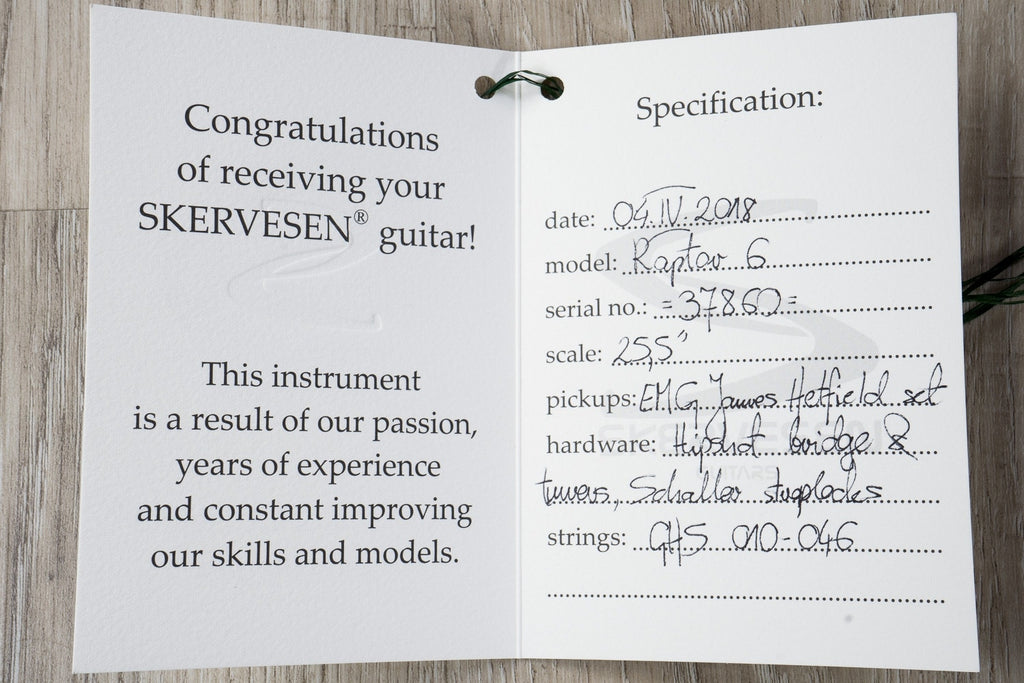 Congratulations
of receiving your
SKERVESEN® guitar!
This instrument
is a result of our passion,
years of experience
and constant improving
our skills and models.
Specification:
date: 04.IV.2018
model: Raptor 6
serial no.: =37860=
scale: 25,5"
pickups: EMG James Hetfield set
hardware: Hipshot bridge &
tuners, Schaller straplocks
strings: GHS 010-046